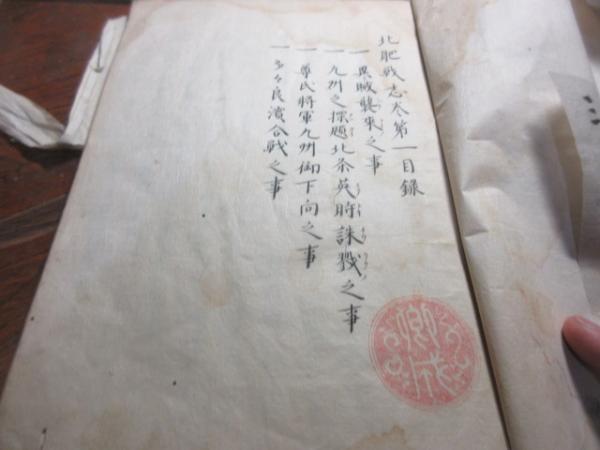 北肥戦志巻第一目録
一 異賊襲来之事
一 九州之探題北条英時誅戮之事
一 尊氏将軍九州御下向之事
一 多々良濱合戦之事